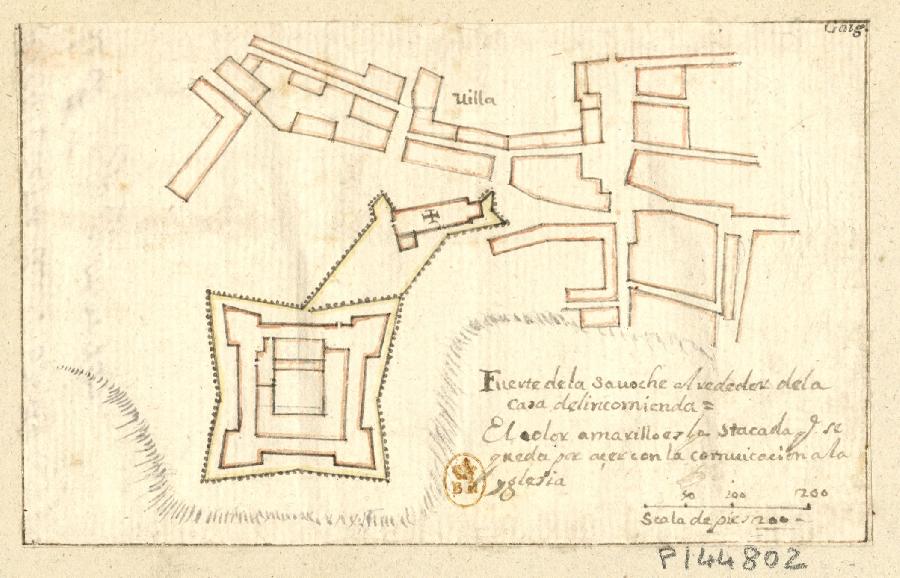 Garg.
Villa
Fuerte de la Sauoche Alrededor de la
Casa delincomienda =
El color amarillo es la stacada q se
queda por açer con la comuicacion a la
yglesia
50 100 200
Scala de pies 200 =
B N
P144802